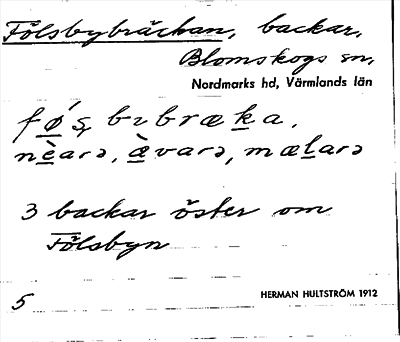 Fölsbybräckan, backar,
Blomskogs sn,
Nordmarks hd, Värmlands län
nèarə, ævarə, mæLarə
3 backar öster om
Fölsbyn
5
HERMAN HULTSTRÖM 1912